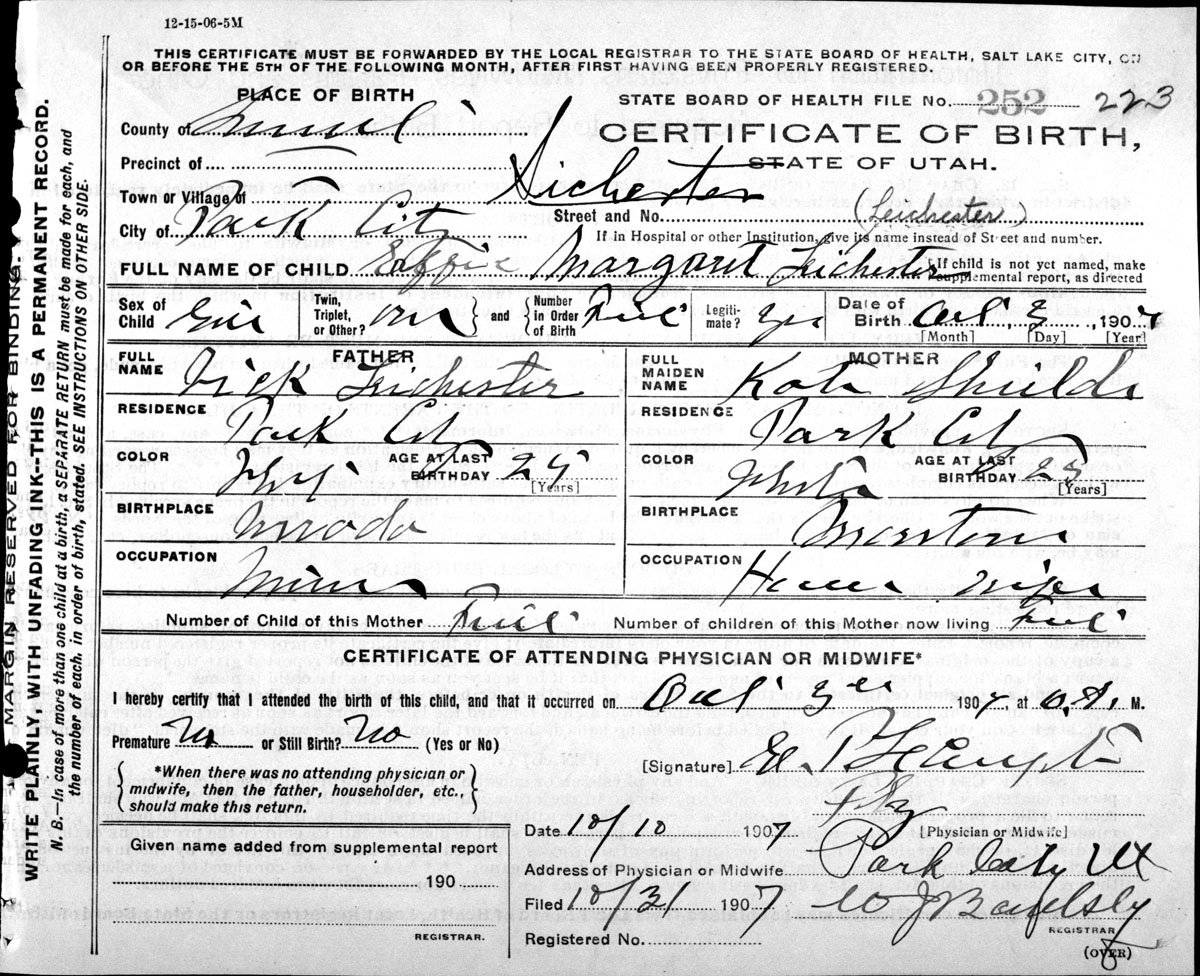 12-15-06-5M
THIS CERTIFICATE MUST BE FORWARDED BY THE LOCAL REGISTRAR TO THE STATE BOARD OF HEALTH, SALT LAKE CITY, ON
OR BEFORE THE 5TH OF THE FOLLOWING MONTH, AFTER FIRST HAVING BEEN PROPERLY REGISTERED.
MARGIN RESERVED FOR BINDING.
WRITE PLAINLY, WITH UNFADING INK--THIS IS A PERMANENT RECORD.
N. B.—In case of more than one child at a birth, a SEPARATE RETURN must be made for each, and
the number of each, in order of birth, stated. SEE INSTRUCTIONS ON OTHER SIDE.
PLACE OF BIRTH
STATE BOARD OF HEALTH FILE NO. 252 223
County of Summit
CERTIFICATE OF BIRTH,
Precinct of
STATE OF UTAH.
Town or Village of
Street and No. (Leichester)
City of Park City
If in Hospital or other Institution, give its name instead of Street and number.
FULL NAME OF CHILD Effie Margaret Leichester
If child is not yet named, make
supplemental report, as directed
Sex of Child Girl
Twin, Triplet, or Other?
and
Number in Order of Birth
Legiti-mate? Yes
Date of Birth Oct 3, 1907
[Month] [Day] [Year]
FATHER
FULL NAME Dick Leichester
RESIDENCE Park City
COLOR
AGE AT LAST BIRTHDAY 29 [Years]
BIRTHPLACE Nevada
OCCUPATION Miner
MOTHER
FULL MAIDEN NAME Kate Shields
RESIDENCE Park City
COLOR White
AGE AT LAST BIRTHDAY 25 [Years]
BIRTHPLACE
OCCUPATION House Wife
Number of Child of this Mother
Number of children of this Mother now living
CERTIFICATE OF ATTENDING PHYSICIAN OR MIDWIFE*
I hereby certify that I attended the birth of this child, and that it occurred on Oct 3 1907, at M.
Premature No or Still Birth? No (Yes or No)
[Signature]
*When there was no attending physician or
midwife, then the father, householder, etc.,
should make this return.
Date 10/10 1907
[Physician or Midwife]
Given name added from supplemental report
190
REGISTRAR.
Address of Physician or Midwife Park City Ut
Filed 10/31 1907
REGISTRAR
Registered No.
(OVER)